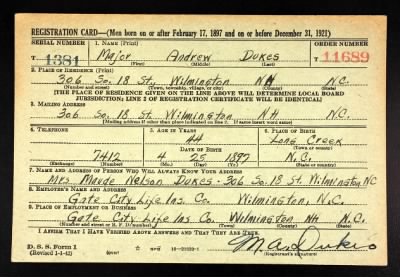 REGISTRATION CARD—(Men born on or after February 17, 1897 and on or before December 31, 1921)
SERIAL NUMBER 1. NAME (Print) ORDER NUMBER
T 1381 Major Andrew Dukes T 11689
(First) (Middle) (Last)
2. PLACE OF RESIDENCE (Print)
306 So. 18 St. Wilmington NH N.C.
(Number and street) (Town, township, village, or city) (County) (State)
[THE PLACE OF RESIDENCE GIVEN ON THE LINE ABOVE WILL DETERMINE LOCAL BOARD
JURISDICTION; LINE 2 OF REGISTRATION CERTIFICATE WILL BE IDENTICAL]
3. MAILING ADDRESS
306 So. 18 St. Wilmington NH N.C.
[Mailing address if other than place indicated on line 2. If same insert word same]
4. TELEPHONE 5. AGE IN YEARS 6. PLACE OF BIRTH
44 Long Creek
DATE OF BIRTH (Town or county)
7412 4 25 1897 N.C.
(Exchange) (Number) (Mo.) (Day) (Yr.) (State or country)
7. NAME AND ADDRESS OF PERSON WHO WILL ALWAYS KNOW YOUR ADDRESS
Mrs. Maude Nelson Dukes - 306 So. 18 St. Wilmington NC
8. EMPLOYER'S NAME AND ADDRESS
Gate City Life Ins. Co. Wilmington, N.C.
9. PLACE OF EMPLOYMENT OR BUSINESS
Gate City Life Ins. Co. Wilmington NH N.C.
(Number and street or R. F. D. number) (Town) (County) (State)
I AFFIRM THAT I HAVE VERIFIED ABOVE ANSWERS AND THAT THEY ARE TRUE.
D. S. S. Form 1
(Revised 1-1-42) (over) M. A. Dukes
(Registrant's signature)